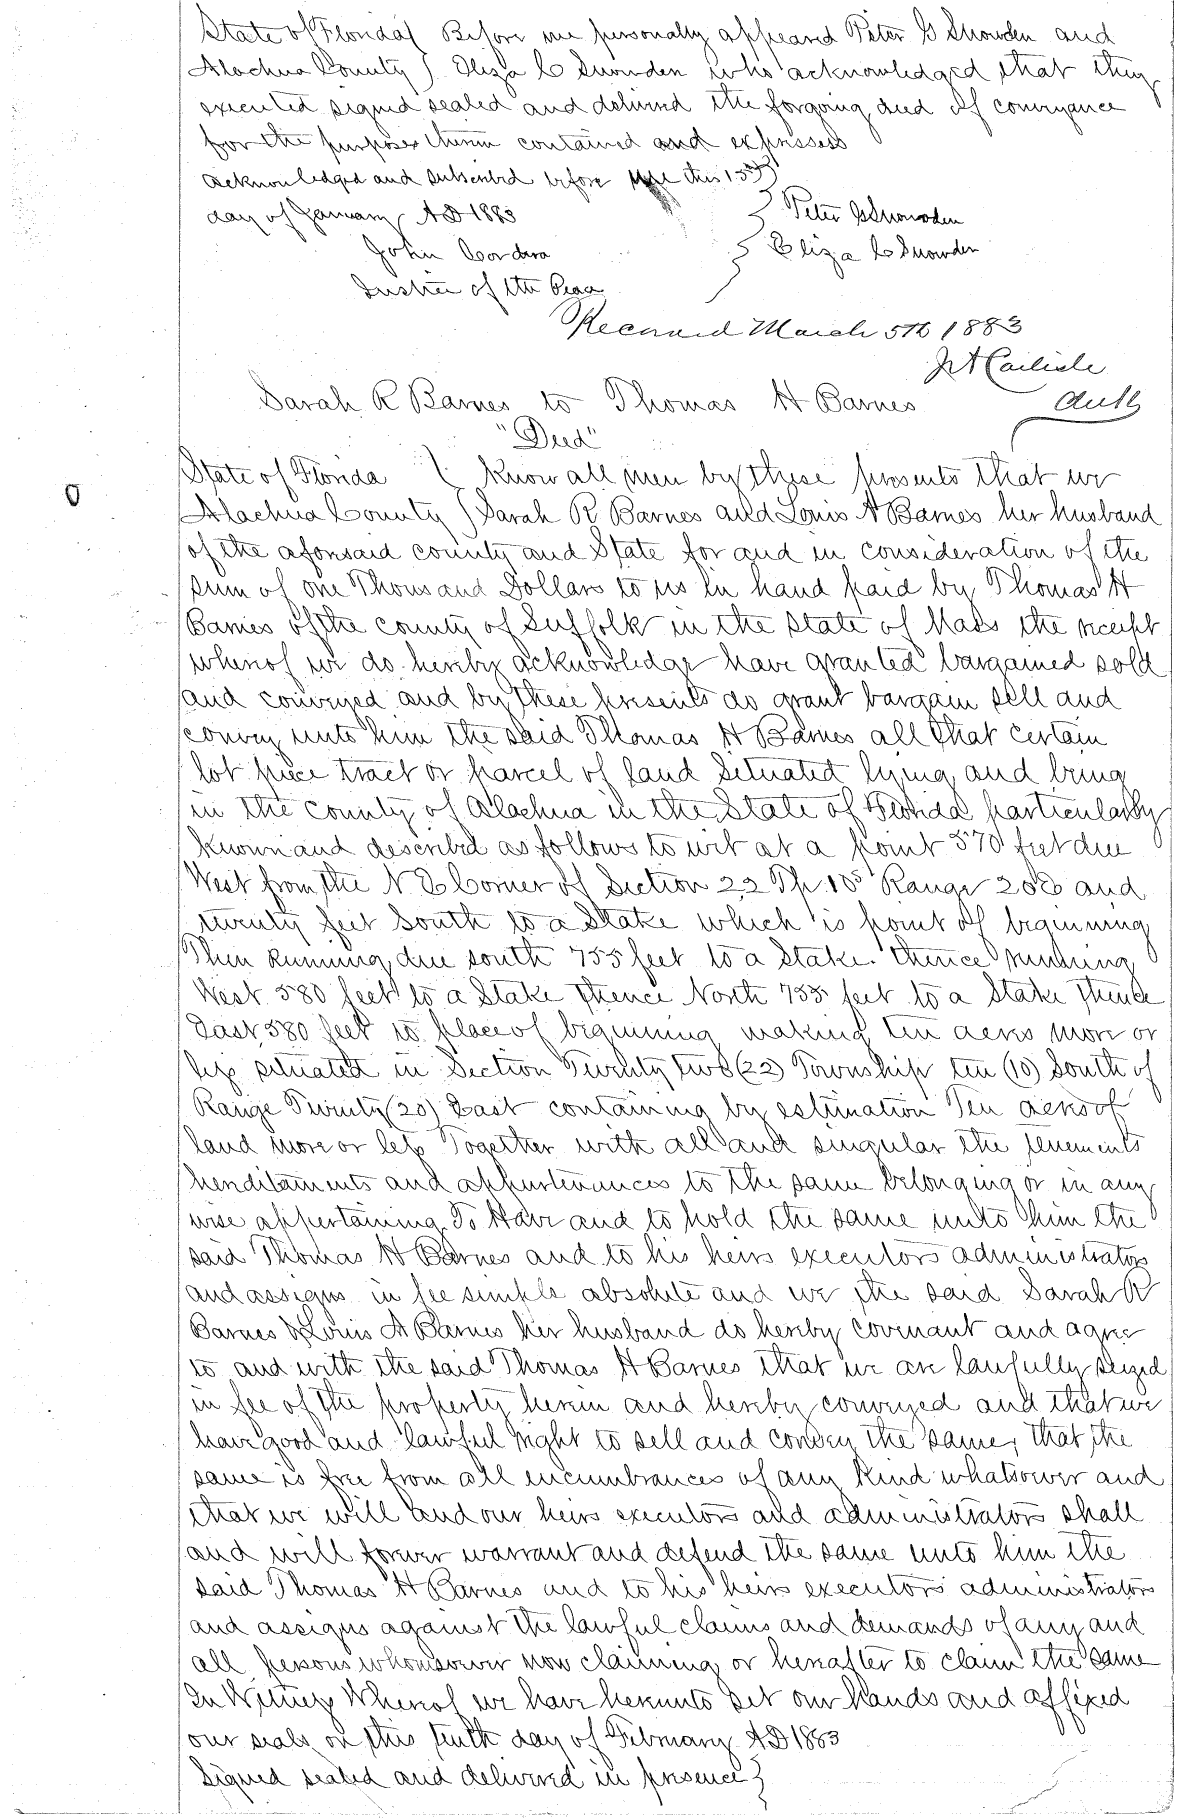 State of Florida } Before me personally appeared Peter G Snowden and
Alachua County } Eliza C Snowden who acknowledged that they
executed signed sealed and delivered the forgoing deed of conveyance
for the purposes therein contained and expressed
acknowledged and subscribed before me this 15th
day of January AD 1883 } Peter G Snowden
John Cordara } Eliza C Snowden
Justice of the Peace
Record March 5th 1883
J A Carlisle
Clerk
Sarah R Barnes to Thomas H Barnes
"Deed"
State of Florida } Know all men by these presents that we
Alachua County } Sarah R Barnes and Louis A Barnes her husband
of the aforesaid county and State for and in consideration of the
sum of one Thousand Dollars to us in hand paid by Thomas H
Barnes of the county of Suffolk in the state of Mass the receipt
whereof we do hereby acknowledge have granted bargained sold
and conveyed and by these presents do grant bargain sell and
convey unto him the said Thomas H Barnes all that certain
lot piece tract or parcel of land situated lying and being
in the county of Alachua in the State of Florida particularly
known and described as follows to wit at a point 570 feet due
West from the N E Corner of Section 22 Tp 10 S Range 20 E and
twenty feet South to a Stake which is point of beginning
Then Running due south 755 feet to a Stake. thence running
West 580 feet to a Stake thence North 755 feet to a Stake thence
East 580 feet to place of beginning making ten acres more or
less situated in Section Twenty two (22) Township ten (10) South of
Range Twenty (20) East containing by estimation Ten acres of
land more or less Together with all and singular the tenements
hereditaments and appurtenances to the same belonging or in any
wise appertaining To Have and to hold the same unto him the
said Thomas H Barnes and to his heirs executors administrators
and assigns in fee simple absolute and we the said Sarah R
Barnes & Louis A Barnes her husband do hereby covenant and agree
to and with the said Thomas H Barnes that we are lawfully seized
in fee of the property herein and hereby conveyed and that we
have good and lawful right to sell and convey the same, that the
same is free from all incumbrances of any kind whatsoever and
that we will and our heirs executors and administrators shall
and will forever warrant and defend the same unto him the
said Thomas H Barnes and to his heirs executors administrators
and assigns against the lawful claims and demands of any and
all persons whomsoever now claiming or hereafter to claim the same
In Witness Whereof we have hereunto set our hands and affixed
our seals on this tenth day of February AD 1883
Signed sealed and delivered in presence }